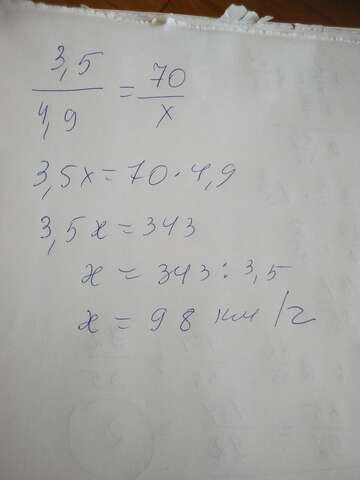 3,5/4,9 = 70/x
3,5x = 70 · 4,9
3,5x = 343
x = 343 : 3,5
x = 98 км/г